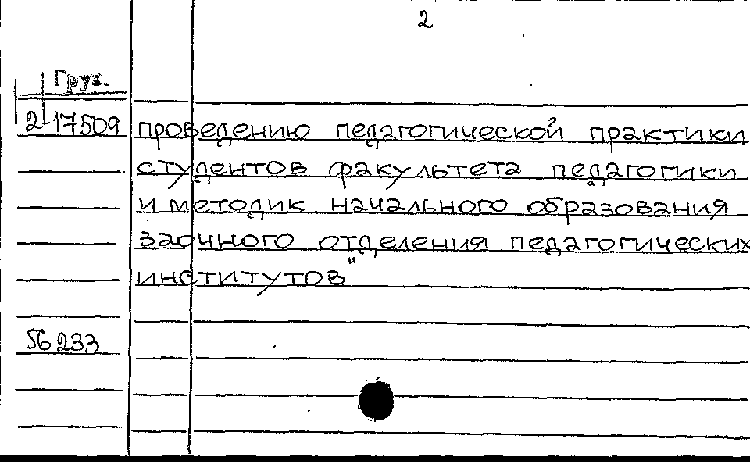 2
Груз.
2 17509 проведению педагогической практики
студентов факультета педагогики
и методик начального образования
заочного отделения педагогических
институтов"
56233